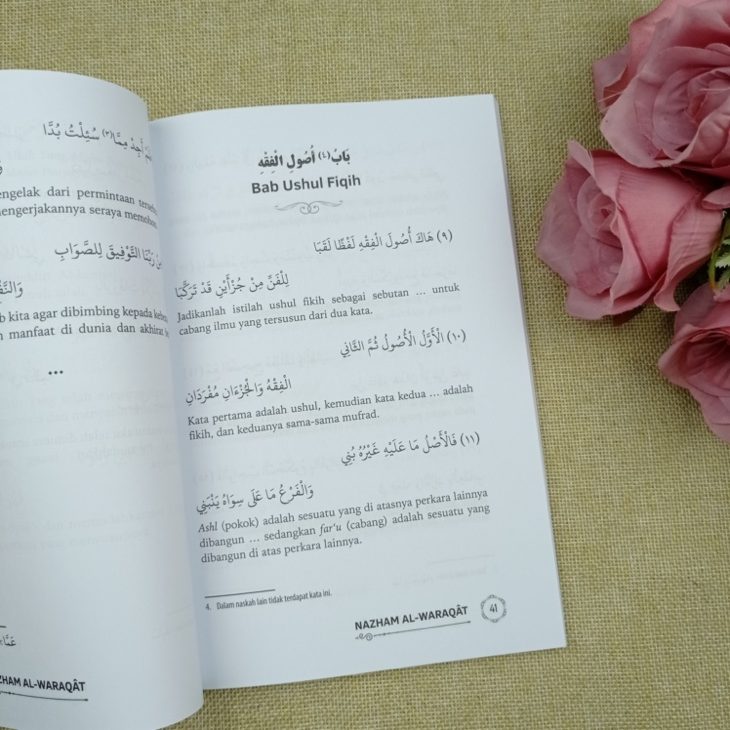 أَجِدْ مِمَّا(٣) سُئِلْتُ بُدَّا
ngelak dari permintaan
engerjakannya seraya memohon
رَبِّنَا التَّوْفِيقَ لِلصَّوَابِ
b kita agar dibimbing kepada
n manfaat di dunia dan akhirat
•••
HAM AL-WARAQÂT
بَابُ(٤) أُصُولِ الْفِقْهِ
Bab Ushul Fiqih
(٩) هَاكَ أُصُولَ الْفِقْهِ لَفْظًا لَقَبَا
لِلْفَنِّ مِنْ جُزْأَيْنِ قَدْ تَرَكَّبَا
Jadikanlah istilah ushul fikih sebagai sebutan ... untuk
cabang ilmu yang tersusun dari dua kata.
(١٠) الْأَوَّلُ الْأُصُولُ ثُمَّ الثَّانِي
الْفِقْهُ وَالْجُزْءَانِ مُفْرَدَانِ
Kata pertama adalah ushul, kemudian kata kedua ... adalah
fikih, dan keduanya sama-sama mufrad.
(١١) فَالْأَصْلُ مَا عَلَيْهِ غَيْرُهُ بُنِي
وَالْفَرْعُ مَا عَلَى سِوَاهُ يَنْبَنِي
Ashl (pokok) adalah sesuatu yang di atasnya perkara lainnya
dibangun ... sedangkan far'u (cabang) adalah sesuatu yang
dibangun di atas perkara lainnya.
4. Dalam naskah lain tidak terdapat kata ini.
NAZHAM AL-WARAQÂT 41